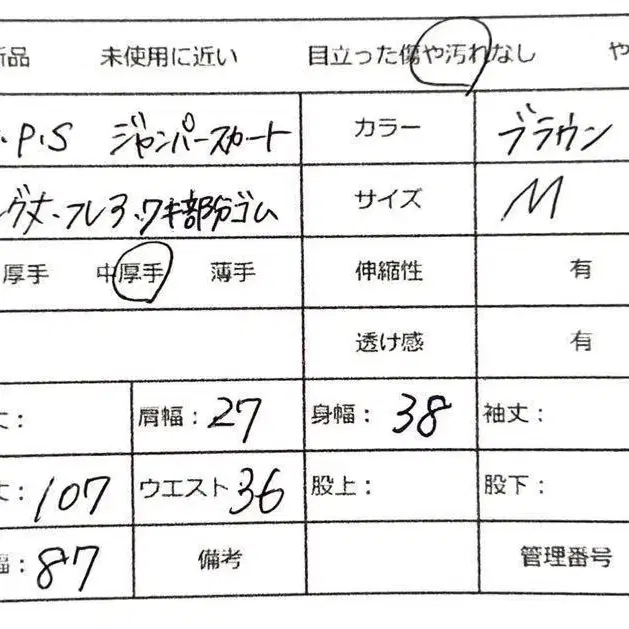 新品 未使用に近い 目立った傷や汚れなし や
・P・S ジャンパースカート カラー ブラウン
グ丈・フレア・ワキ部分ゴム サイズ M
厚手 中厚手 薄手 伸縮性 有
透け感 有
丈： 肩幅：27 身幅：38 袖丈：
丈：107 ウエスト36 股上： 股下：
幅：87 備考 管理番号